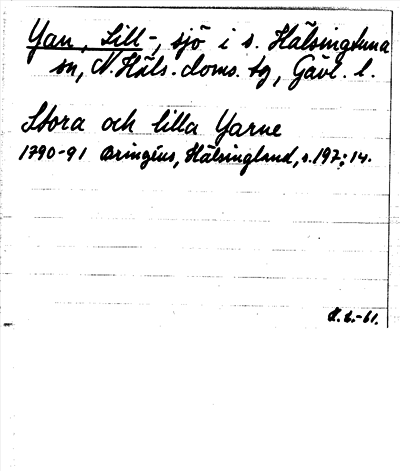 Yan, Lill-, sjö i s. Hälsingtuna
sn, N. Häls. doms. tg, Gävl. l.
Stora och lilla Yarne
1790-91 Bringéus, Hälsingland, s. 197; 14.